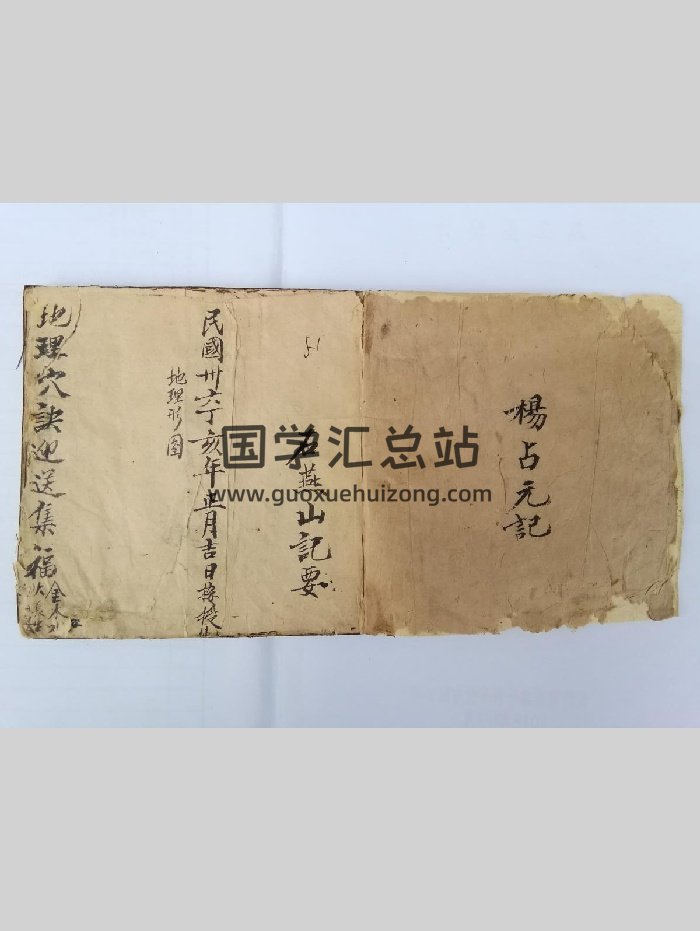 楊占元記
名燕山記要
民國卅六丁亥年正月吉日
地理形图
地理穴訣迎送集福
国学汇总站
www.guoxuehuizong.com